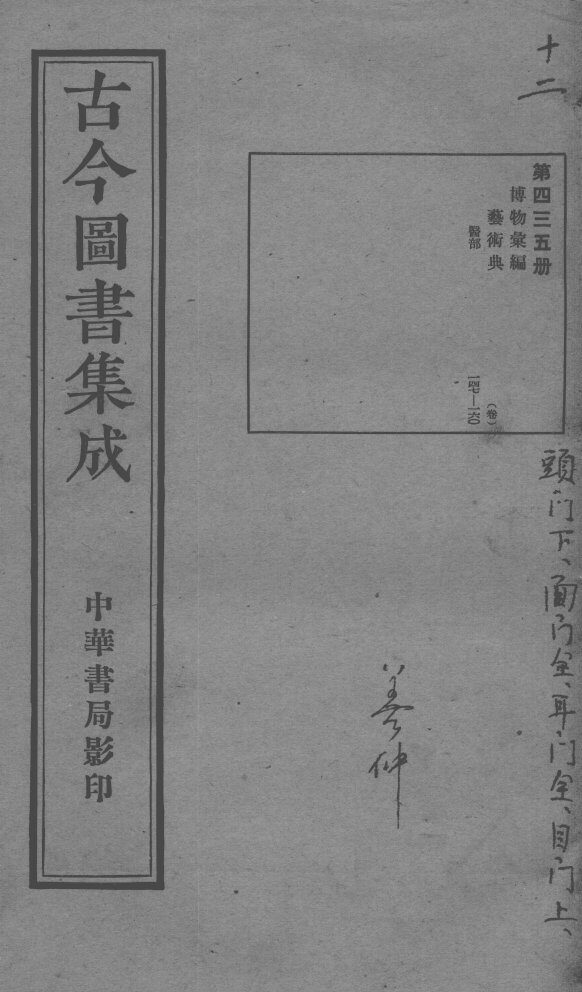 十二
第四三五册
博物彙編
藝術典
醫部
(卷)
一四七—一六〇
頭门下、面门全、耳门全、目门上、
仲
古今圖書集成
中華書局影印